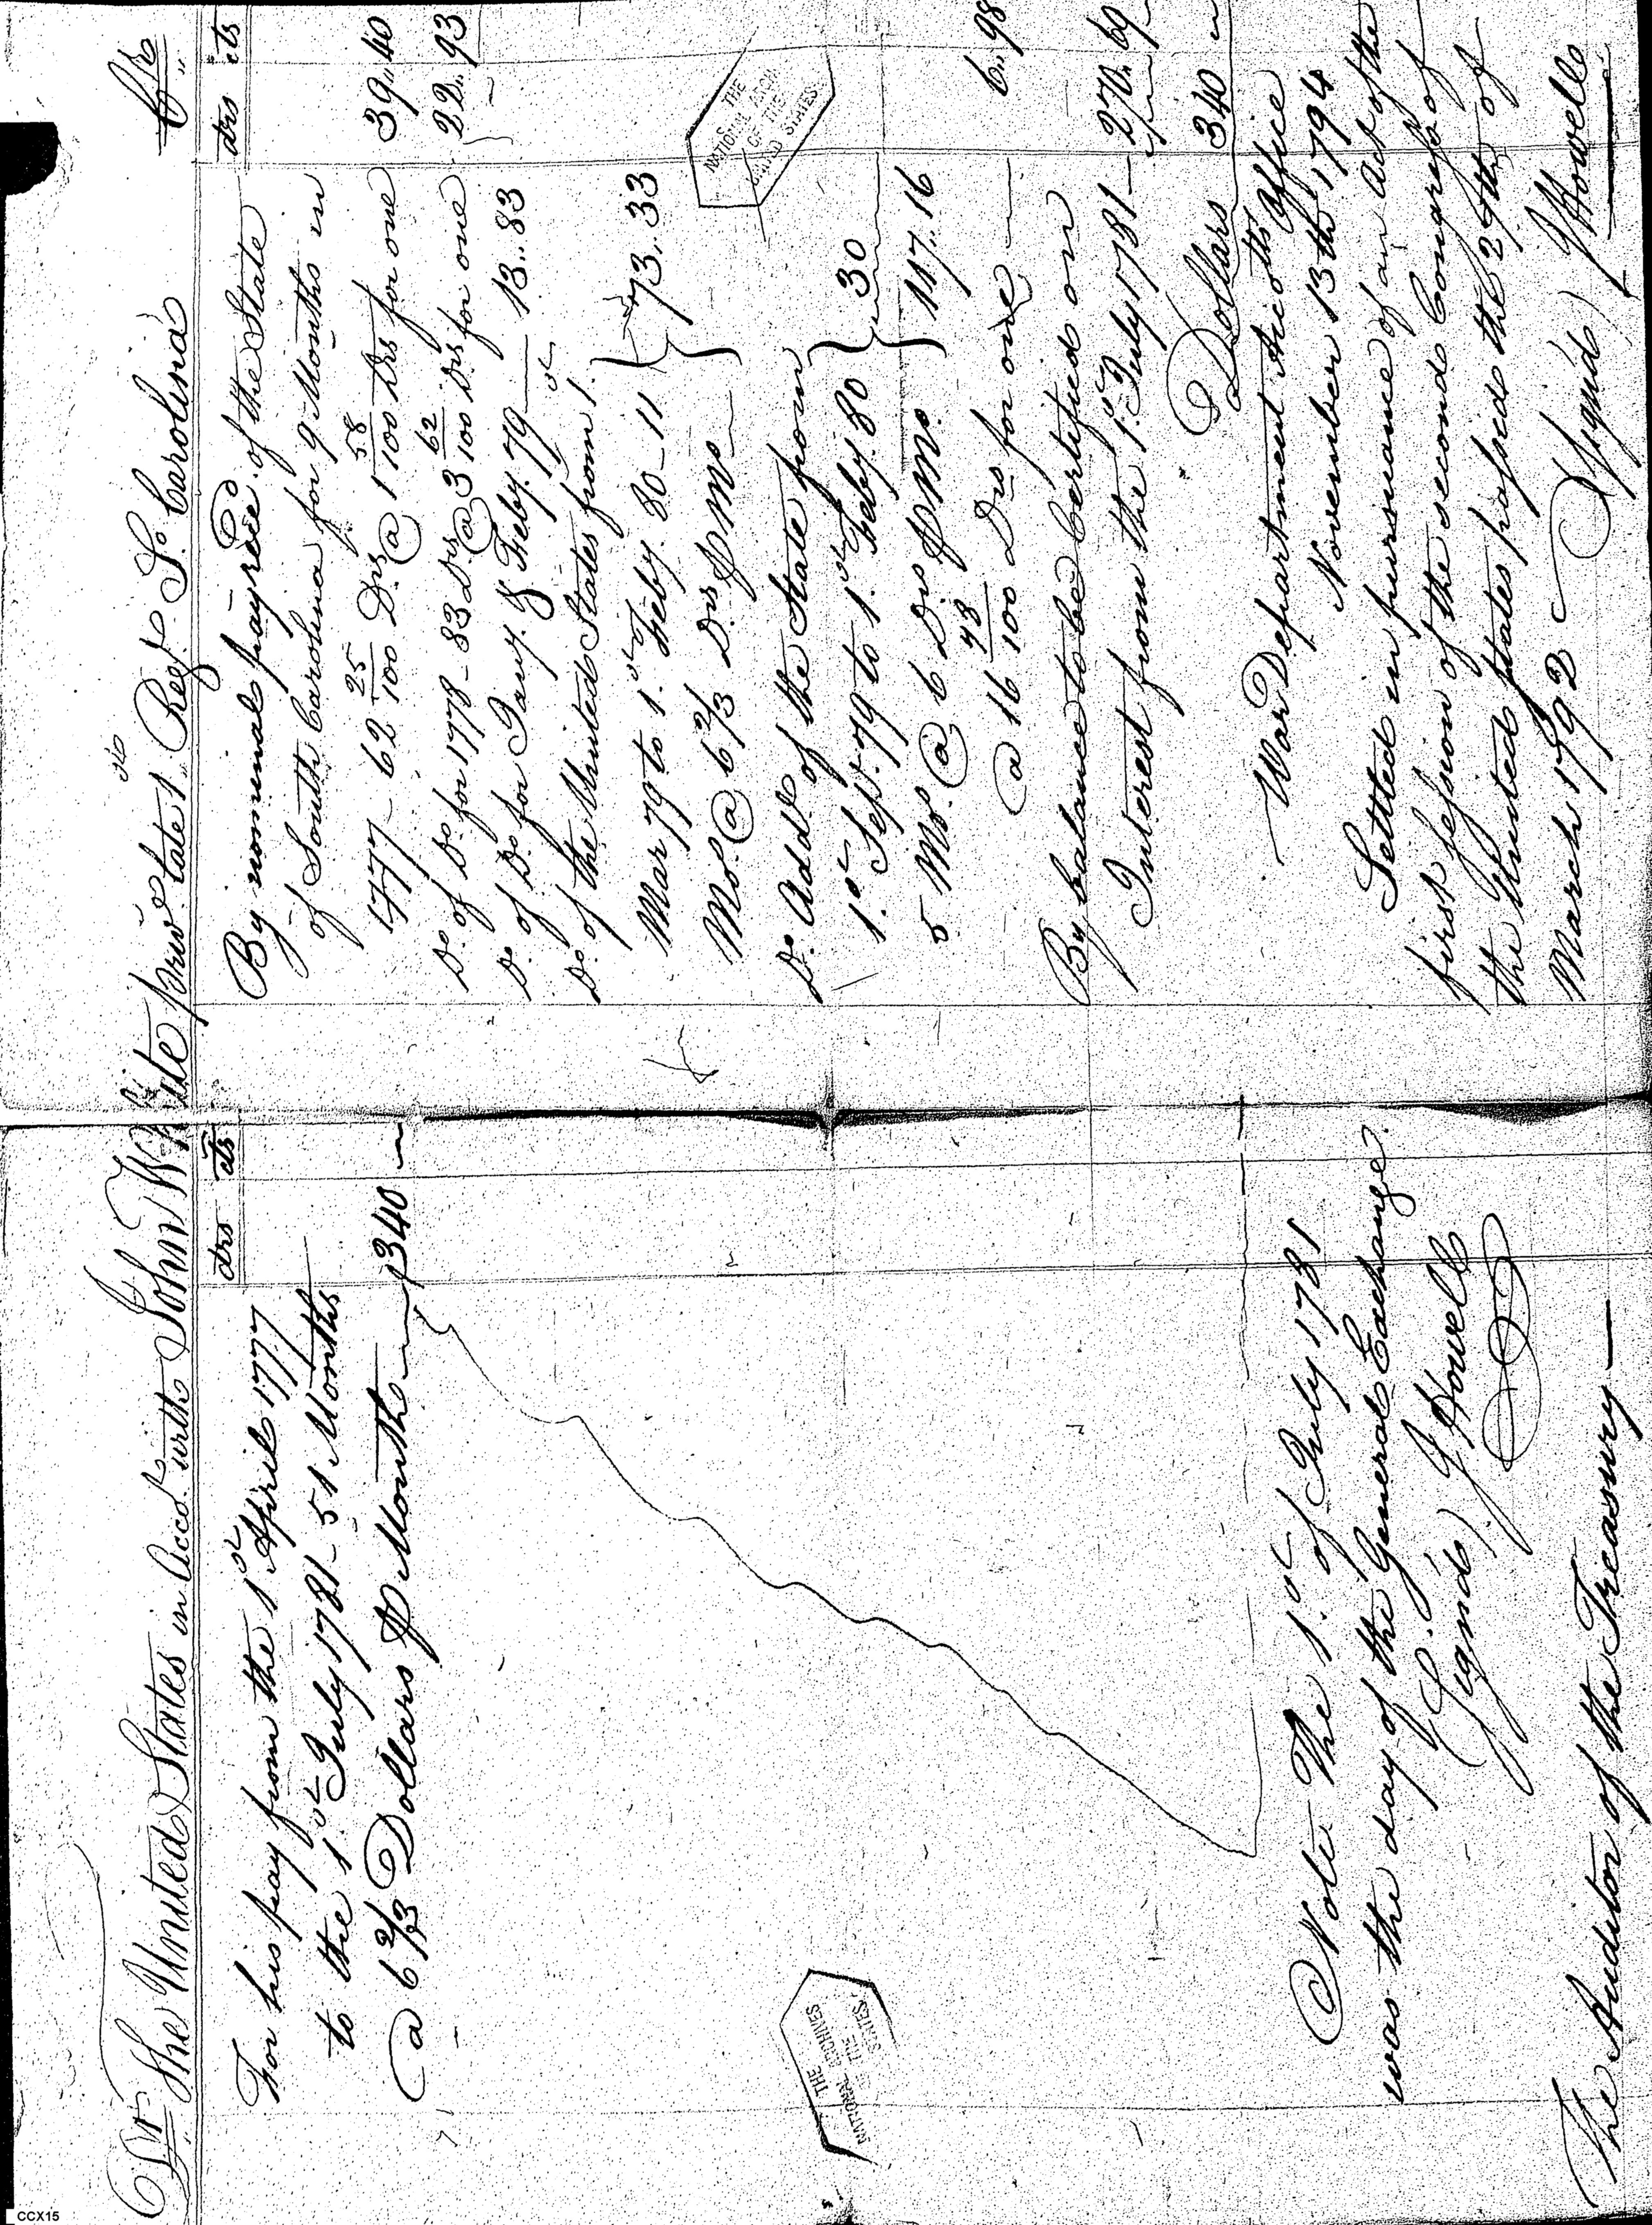 Dr The United States in Acco.t with John White priv.e late 1st Reg.t S.o Carolina Cr
drs cts
For his pay from the 1st April 1777
to the 1.st July 1781 - 51 Months
@ 6 2/3 Dollars ⅌ Month 340
Note The 1.st of July 1781
was the day of the General Exchange.
(Signd) J Howell
The Auditor of the Treasury
drs cts
By nominal pay rec.d of the State
of South Carolina for 9 Months in
1777 - 62 25/100 Drs @ 1 58/100 Drs for one 39,,40
D.o of D.o for 1778 - 83 Drs @ 3 62/100 Drs for one 22,,93
D.o of D.o for Jany. & Feby. 79 13,,83
D.o of the United States from 1.st
Mar 79 to 1.st Feby. 80 - 11
Mo.s @ 6 2/3 Drs ⅌ Mo } 73,,33
D.o Add.l of the State from
1.st Sept. 79 to 1.st Feby. 80
5 Mo.s @ 6 Drs ⅌ Mo. } 30
117,,16
@ 16 78/100 Drs for one 6,,98
By balance to be Certified on
Interest from the 1.st July 1781 - 270,,69
Dollars 340
War Department Accotts Office
November 13th 1794
Settled in pursuance of an Act of the
first session of the second Congress of
the United States passed the 27th of
March 1792 (Signd) J Howell
THE
NATIONAL ARCHIVES
OF THE
UNITED STATES
THE
NATIONAL ARCHIVES
OF THE
UNITED STATES
CCX15